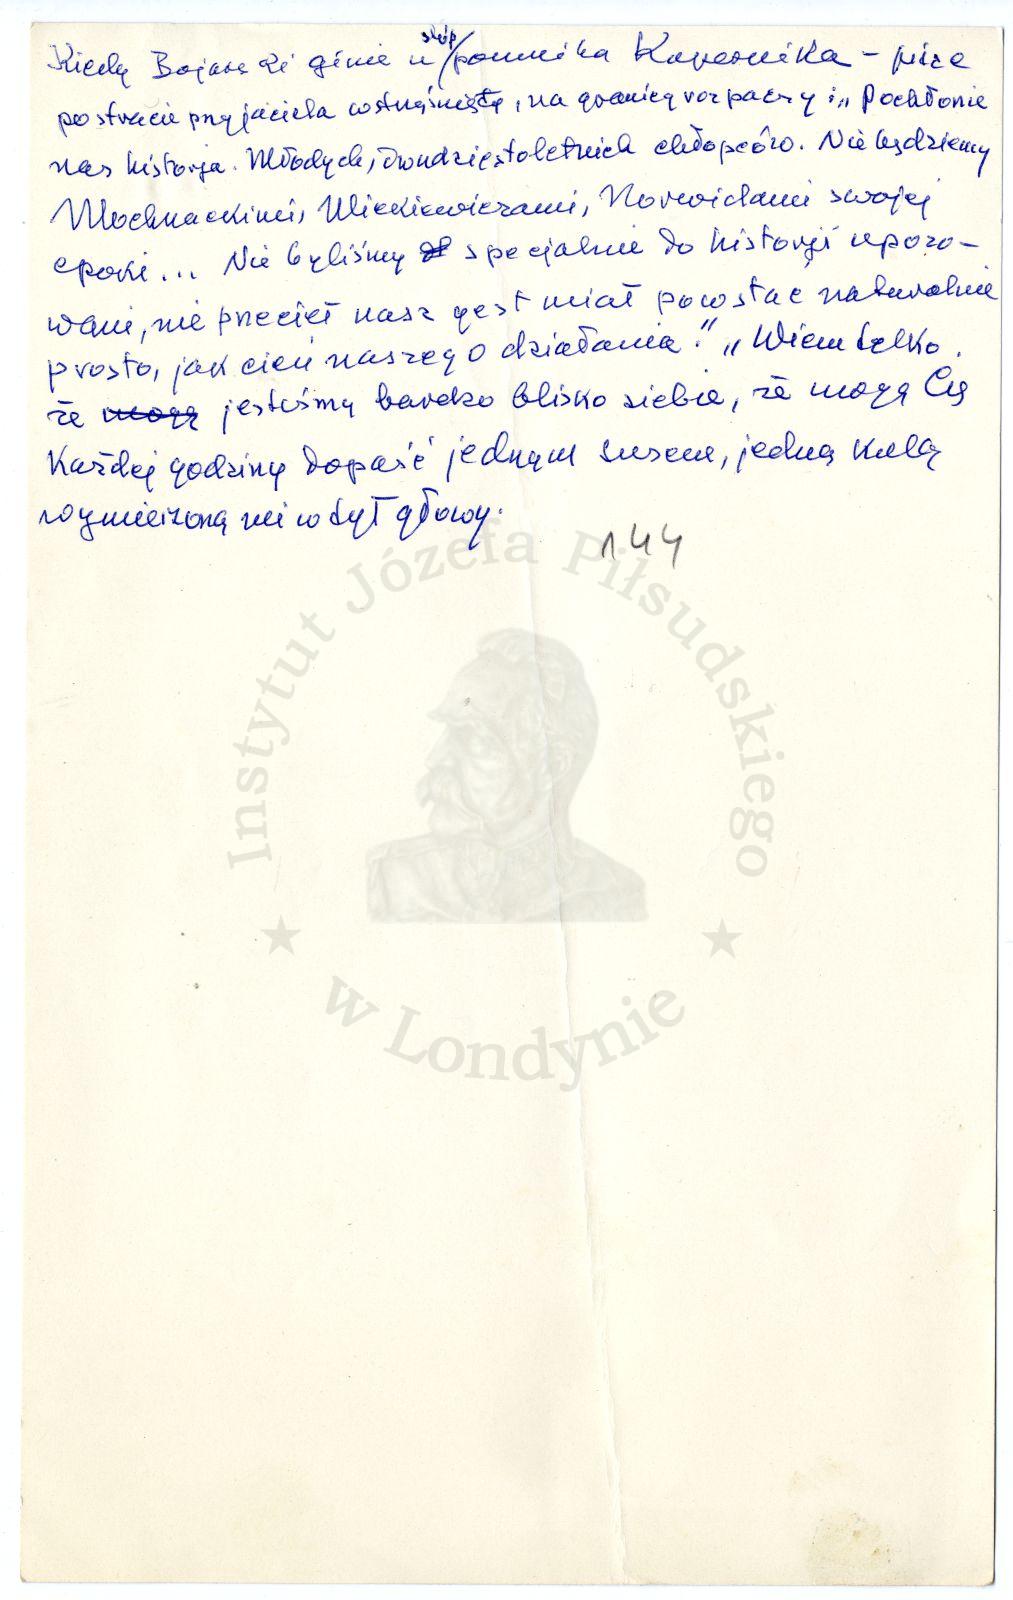 Kiedy Bojarski ginie u stóp pomnika Kopernika – pisze
po stracie przyjaciela wstrząśnięty, na granicy rozpaczy: „Pochłonie
nas historja. Młodych, dwudziestoletnich chłopców. Nie będziemy
Mochnackimi, Mickiewiczami, Norwidami swojej
epoki... Nie byliśmy specjalnie do historji upozo-
wani, nie przecież nasz gest miał powstać naturalnie
prosto, jak cień naszego działania." „Wiem tylko
że mogą jesteśmy bardzo blisko siebie, że mogą Cię
Każdej godziny dopaść jednym susem, jedną kulą
wymierzoną mi w tył głowy.
144
Instytut Józefa Piłsudskiego
w Londynie